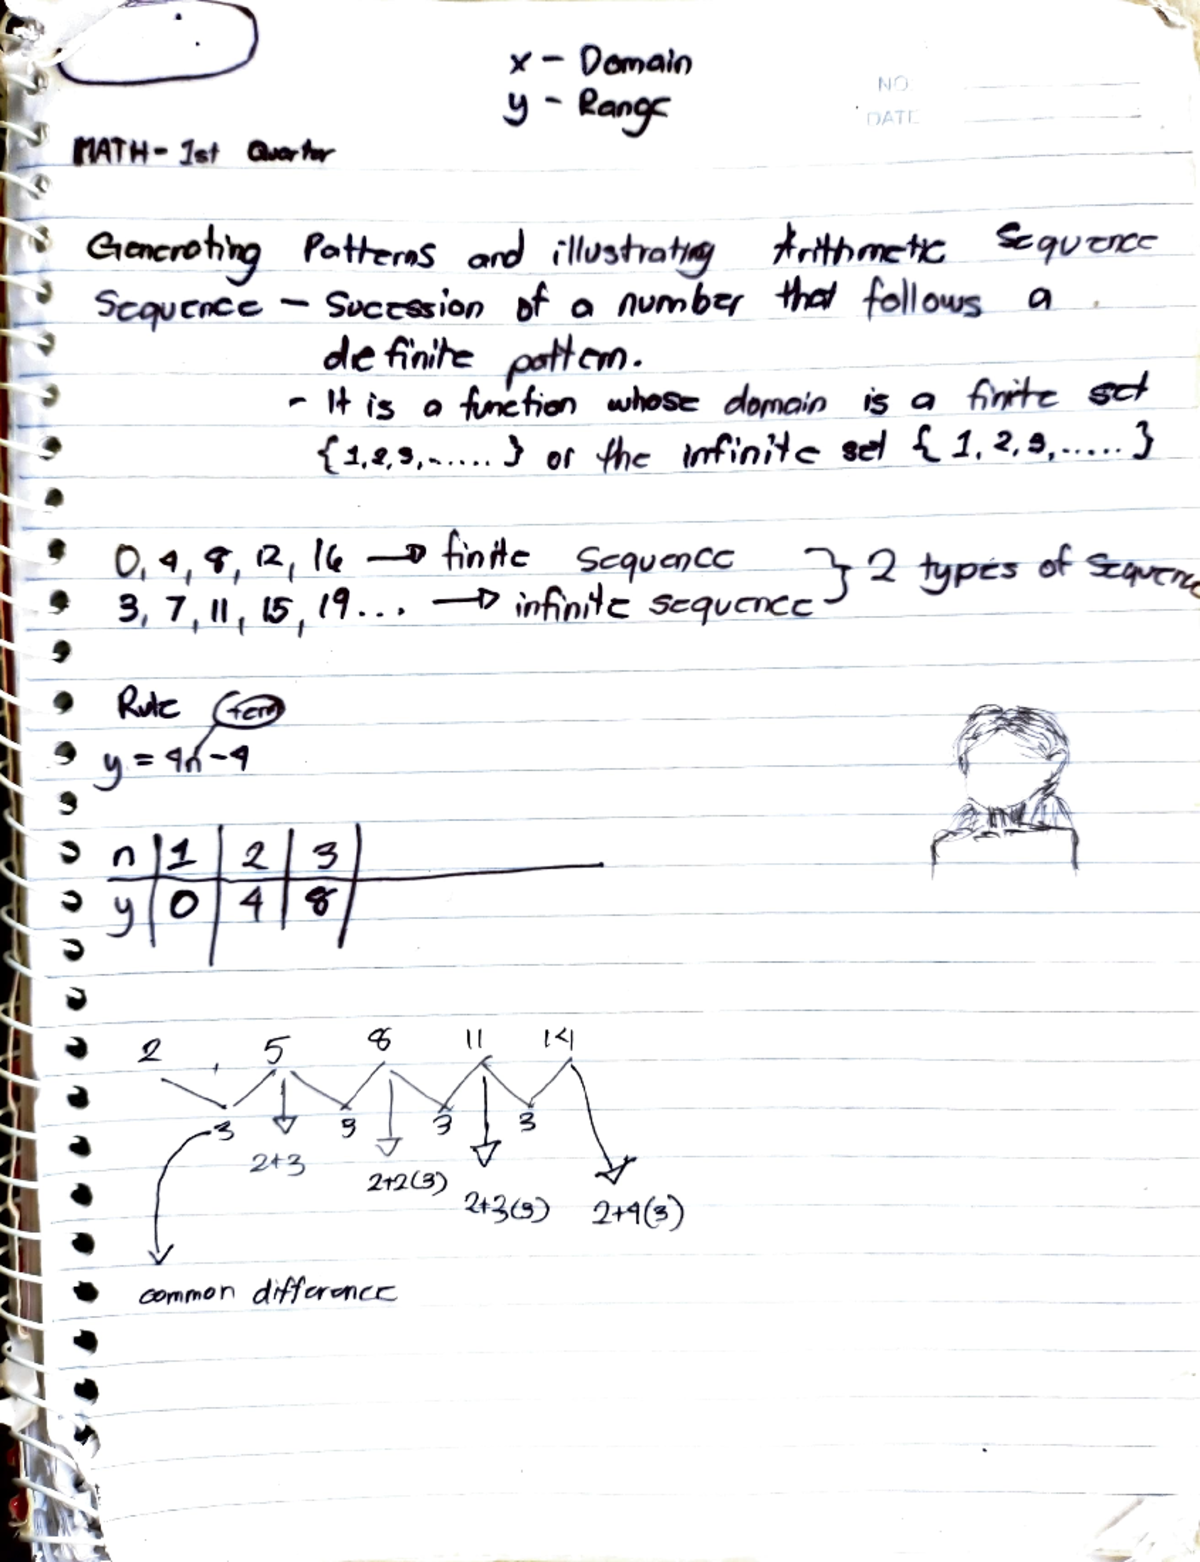 x - Domain
y - Range
NO.
DATE
MATH - 1st Quarter
Generating Patterns and illustrating Arithmetic Sequence
Sequence - Succession of a number that follows a
definite pattern.
- It is a function whose domain is a finite set
{1,2,3,......} or the infinite set {1,2,3,......}
0, 4, 8, 12, 16 → finite sequence } 2 types of Sequence
3, 7, 11, 15, 19... → infinite sequence
Rule term
y = 4n-4
n 1 2 3
y 0 4 8
2 , 5 8 11 14
3 3 3 3
2+3 2+2(3) 2+3(3) 2+4(3)
common difference